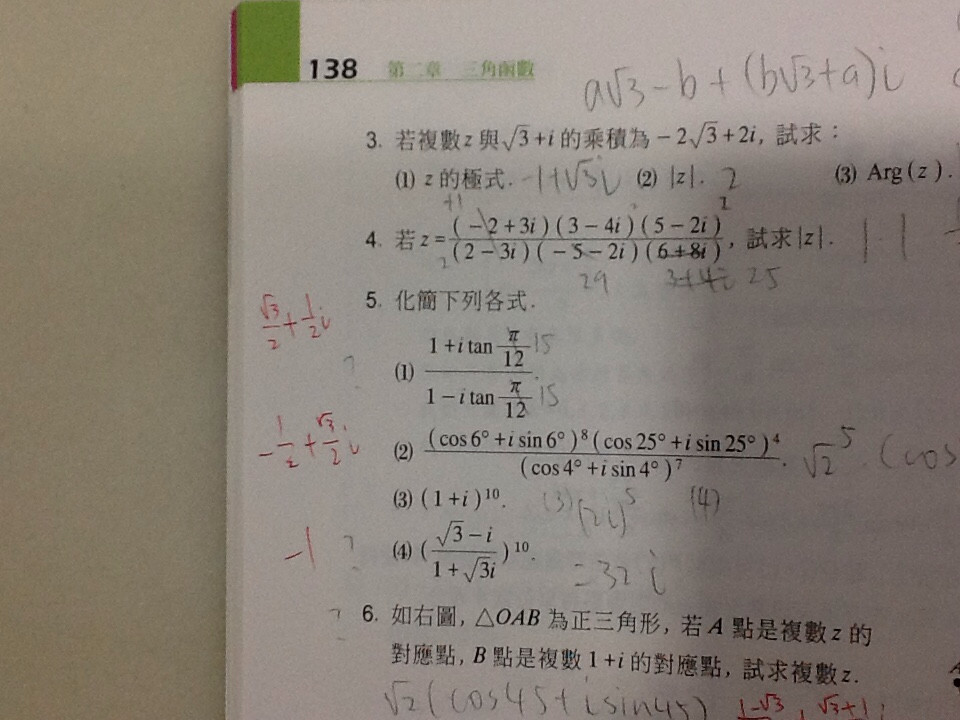 138 第二章 三角函數
a√3-b+(b√3+a)i
3. 若複數z與√3+i的乘積為-2√3+2i, 試求:
(1) z的極式. -1+√3i (2) |z|. 2 (3) Arg(z).
+1 1
4. 若z=(-2+3i)(3-4i)(5-2i)/(2-3i)(-5-2i)(6+8i), 試求|z|. |-1
2 29 3+4i 25
5. 化簡下列各式.
√3/2+1/2i
(1) (1+i tan π/12)/(1-i tan π/12) 15 15
?
-1/2+√3/2i
(2) (cos6°+i sin6°)⁸(cos25°+i sin25°)⁴/(cos4°+i sin4°)⁷. √2⁵ (cos
(3) (1+i)¹⁰. (3) (2i)⁵ (4)
-1 ? (4) ((√3-i)/(1+√3i))¹⁰. =32i
? 6. 如右圖, △OAB為正三角形, 若A點是複數z的
對應點, B點是複數1+i的對應點, 試求複數z.
√2(cos45+isin45) 1-√3 , √3+1 i